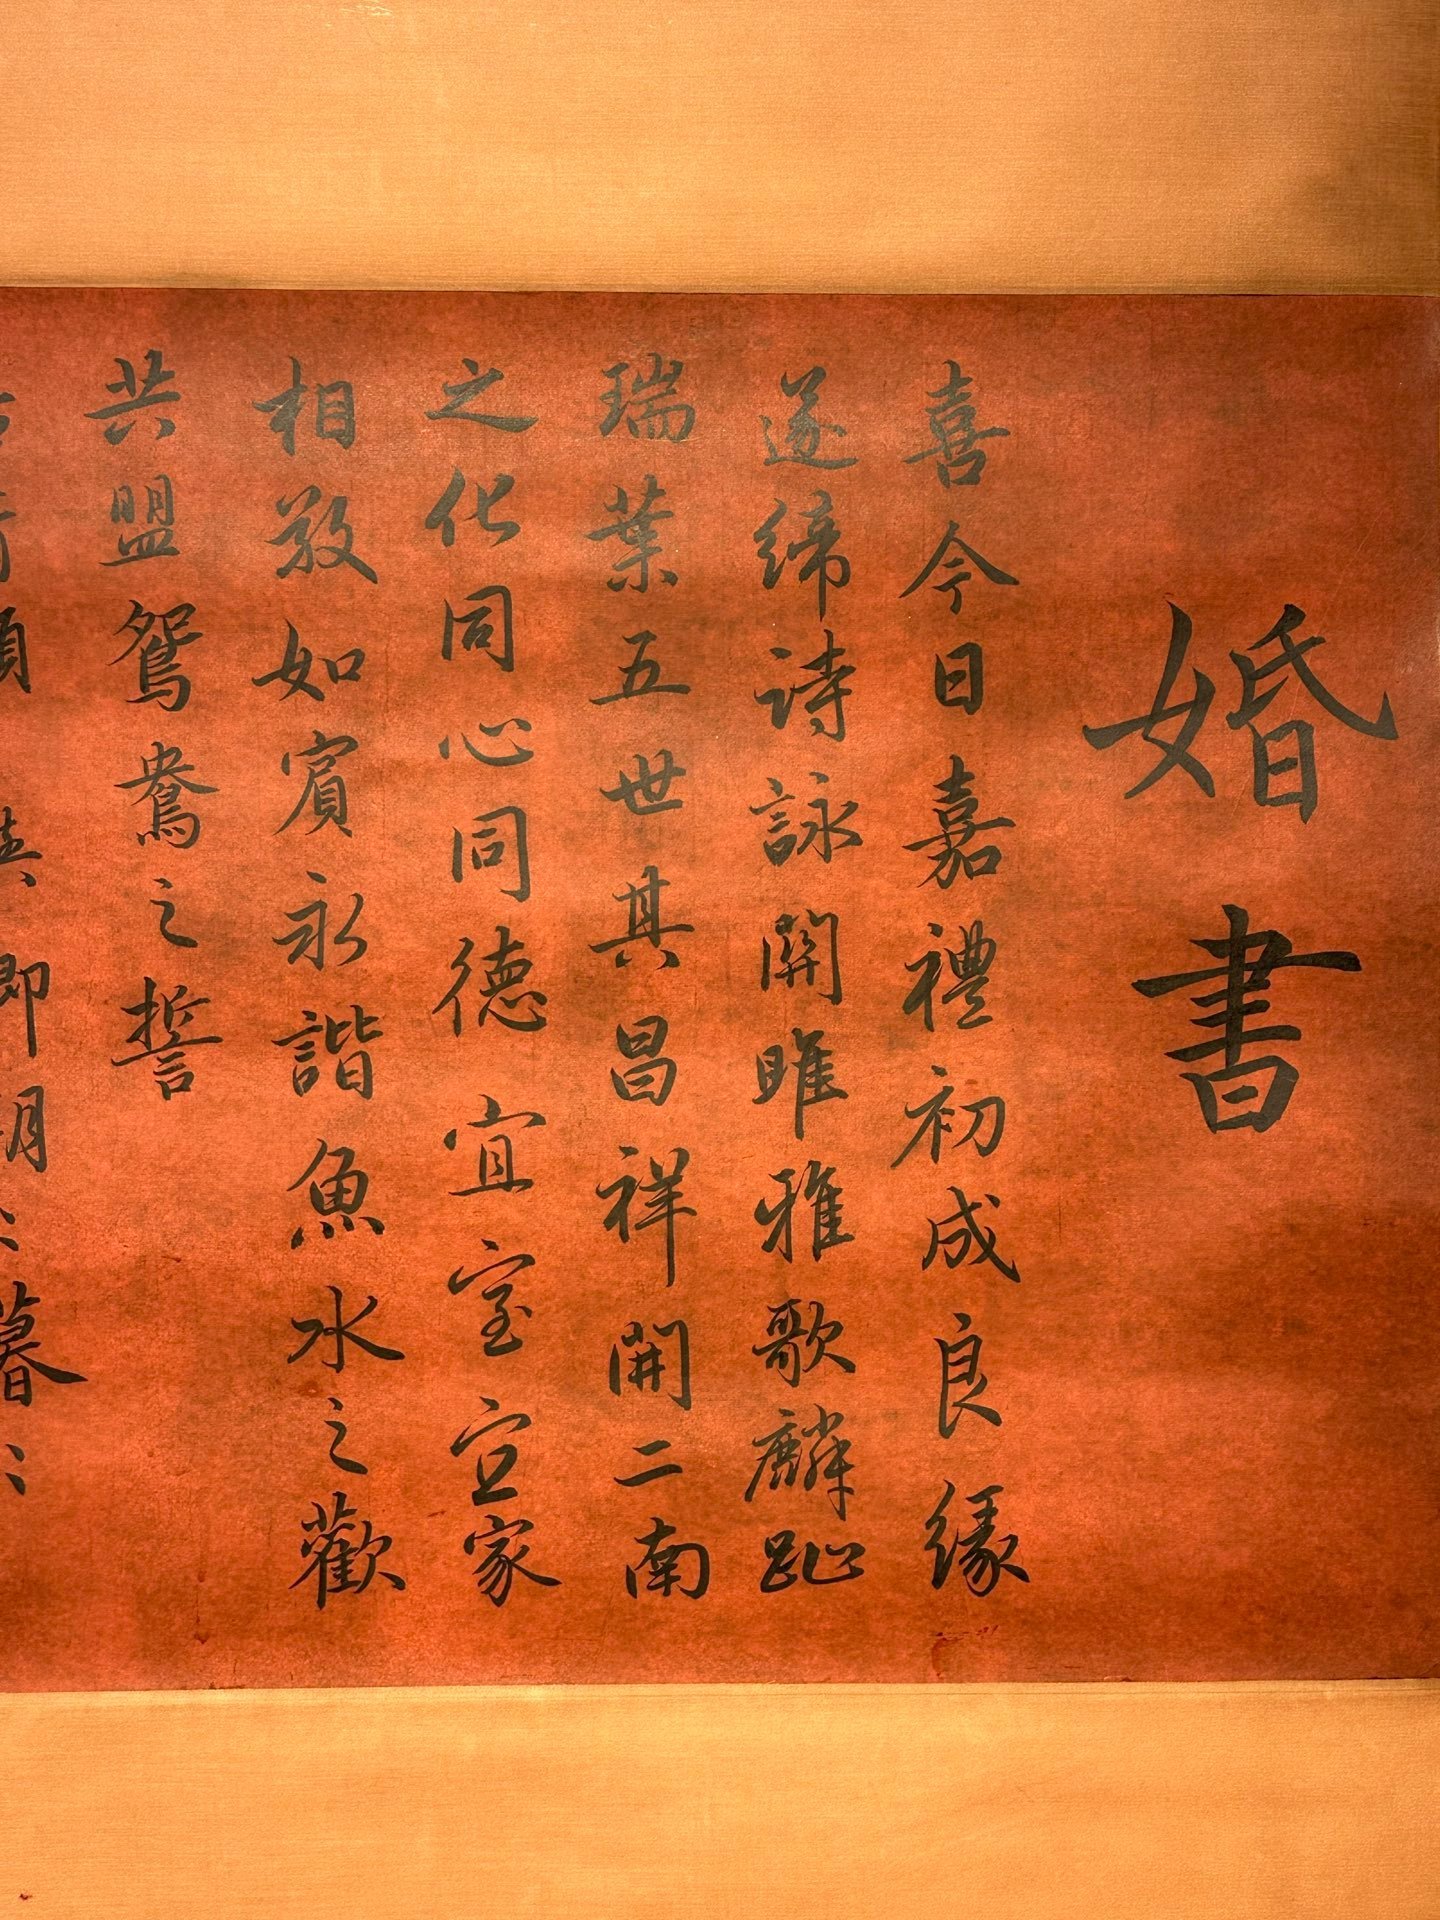 婚書
喜今日嘉禮初成良緣
遂締詩詠關雎雅歌麟趾
瑞葉五世其昌祥開二南
之化同心同德宜室宜家
相敬如賓永諧魚水之歡
共盟鴛鴦之誓